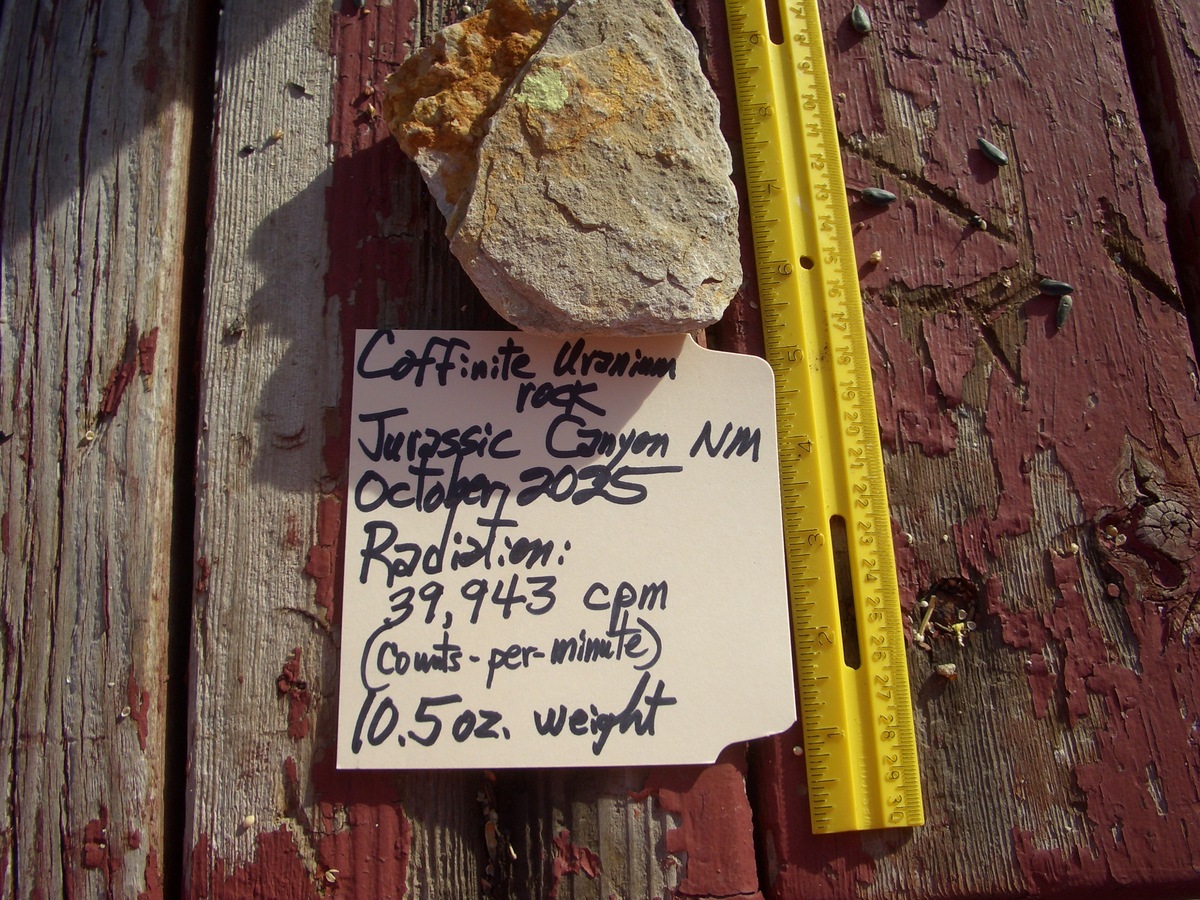 Coffinite Uranium
rock
Jurassic Canyon NM
October, 2025
Radiation:
39,943 cpm
(counts-per-minute)
10.5 oz. weight
9
8
7
6
5
4
3
2
1
7
8
9
10
11
12
13
14
15
16
17
18
19
20
21
22
23
24
25
26
27
28
29
30